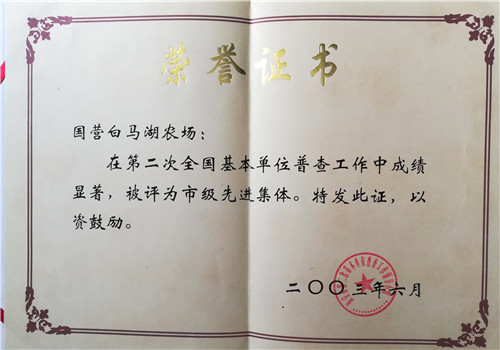 荣誉证书
国营白马湖农场：
在第二次全国基本单位普查工作中成绩
显著，被评为市级先进集体。特发此证，以
资鼓励。
二〇〇三年六月